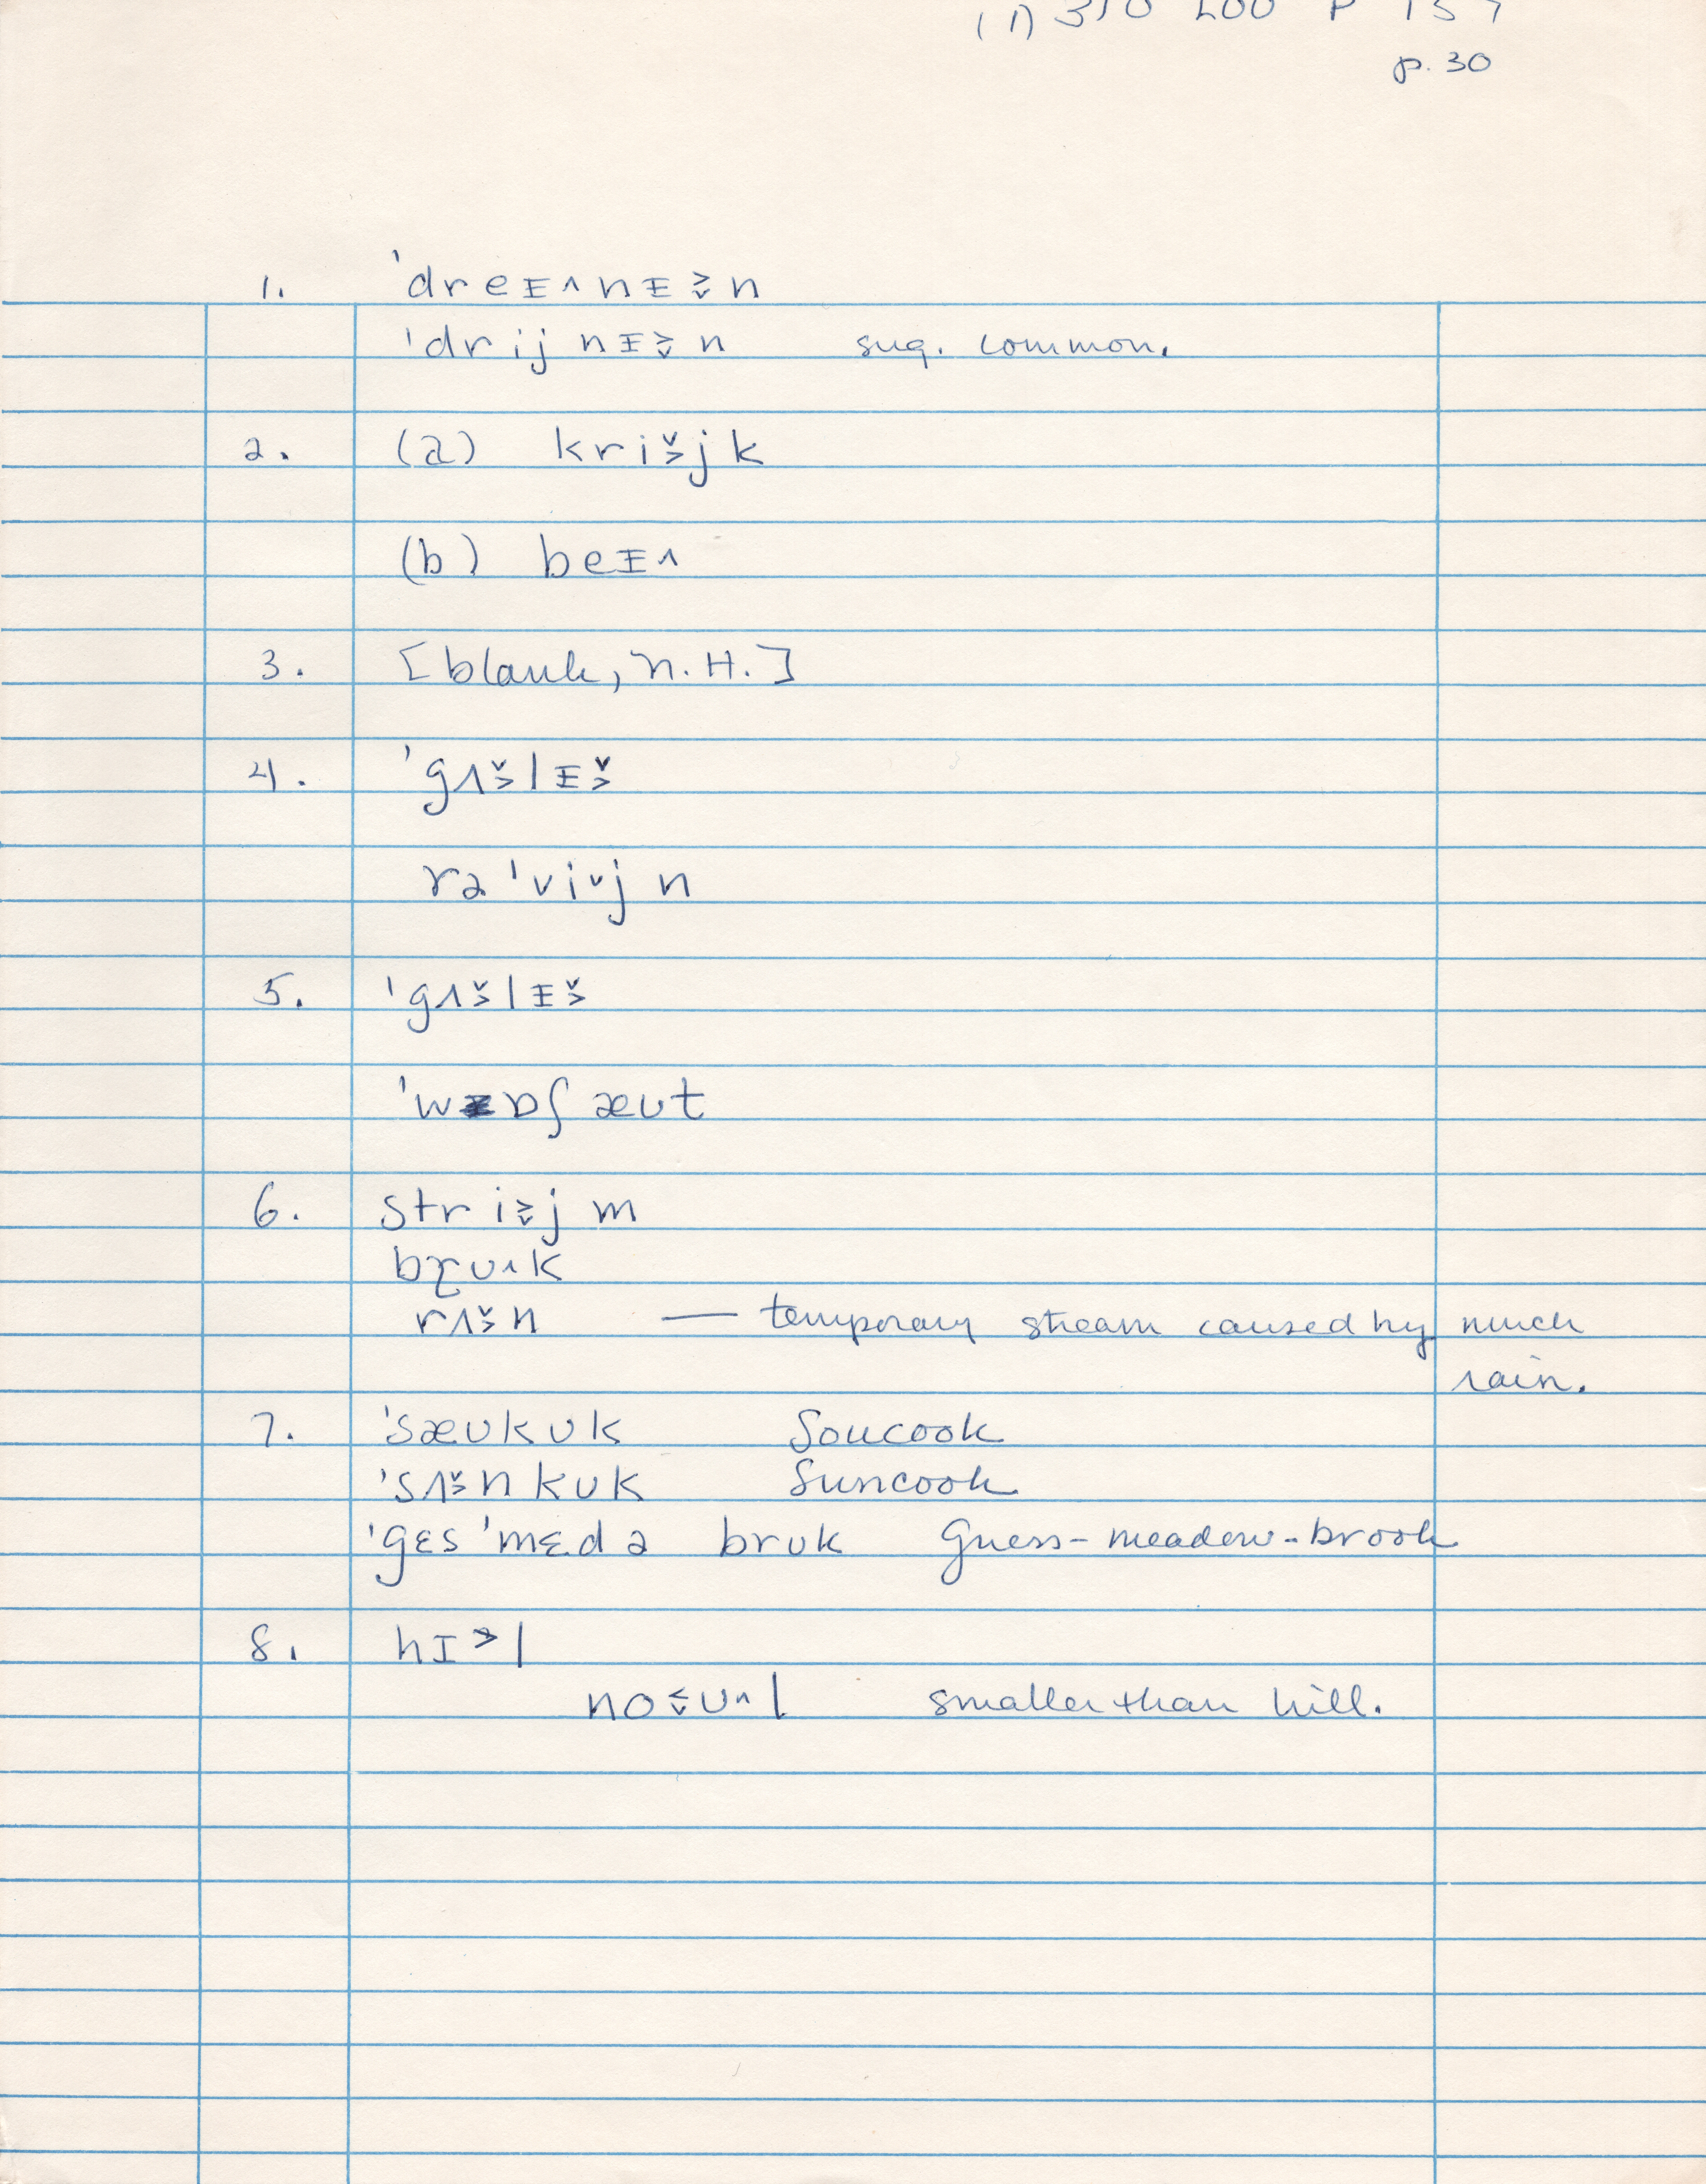 p. 30
1. ˈdreᵻ˄nᵻ˲˅n
ˈdrijnᵻ˲˅n sug. common.
2. (a) kri˅˲jk
(b) beᵻ˄
3. [blank, N.H.]
4. ˈgʌ˅˲lᵻ˅˲
rəˈvi˅jn
5. ˈgʌ˅˲lᵻ˅˲
ˈwɒʃæʊt
6. stri˲˅jm
bɽʊ˄k
rʌ˅˲n — temporary stream caused by much
rain.
7. ˈsæʊkʊk Soucook
ˈsʌ˅˲nkʊk Suncook
ˈgɛsˈmɛdə brʊk Guess-meadow-brook
8. hɪ˲l
no˱˅ʊ˄l smaller than hill.